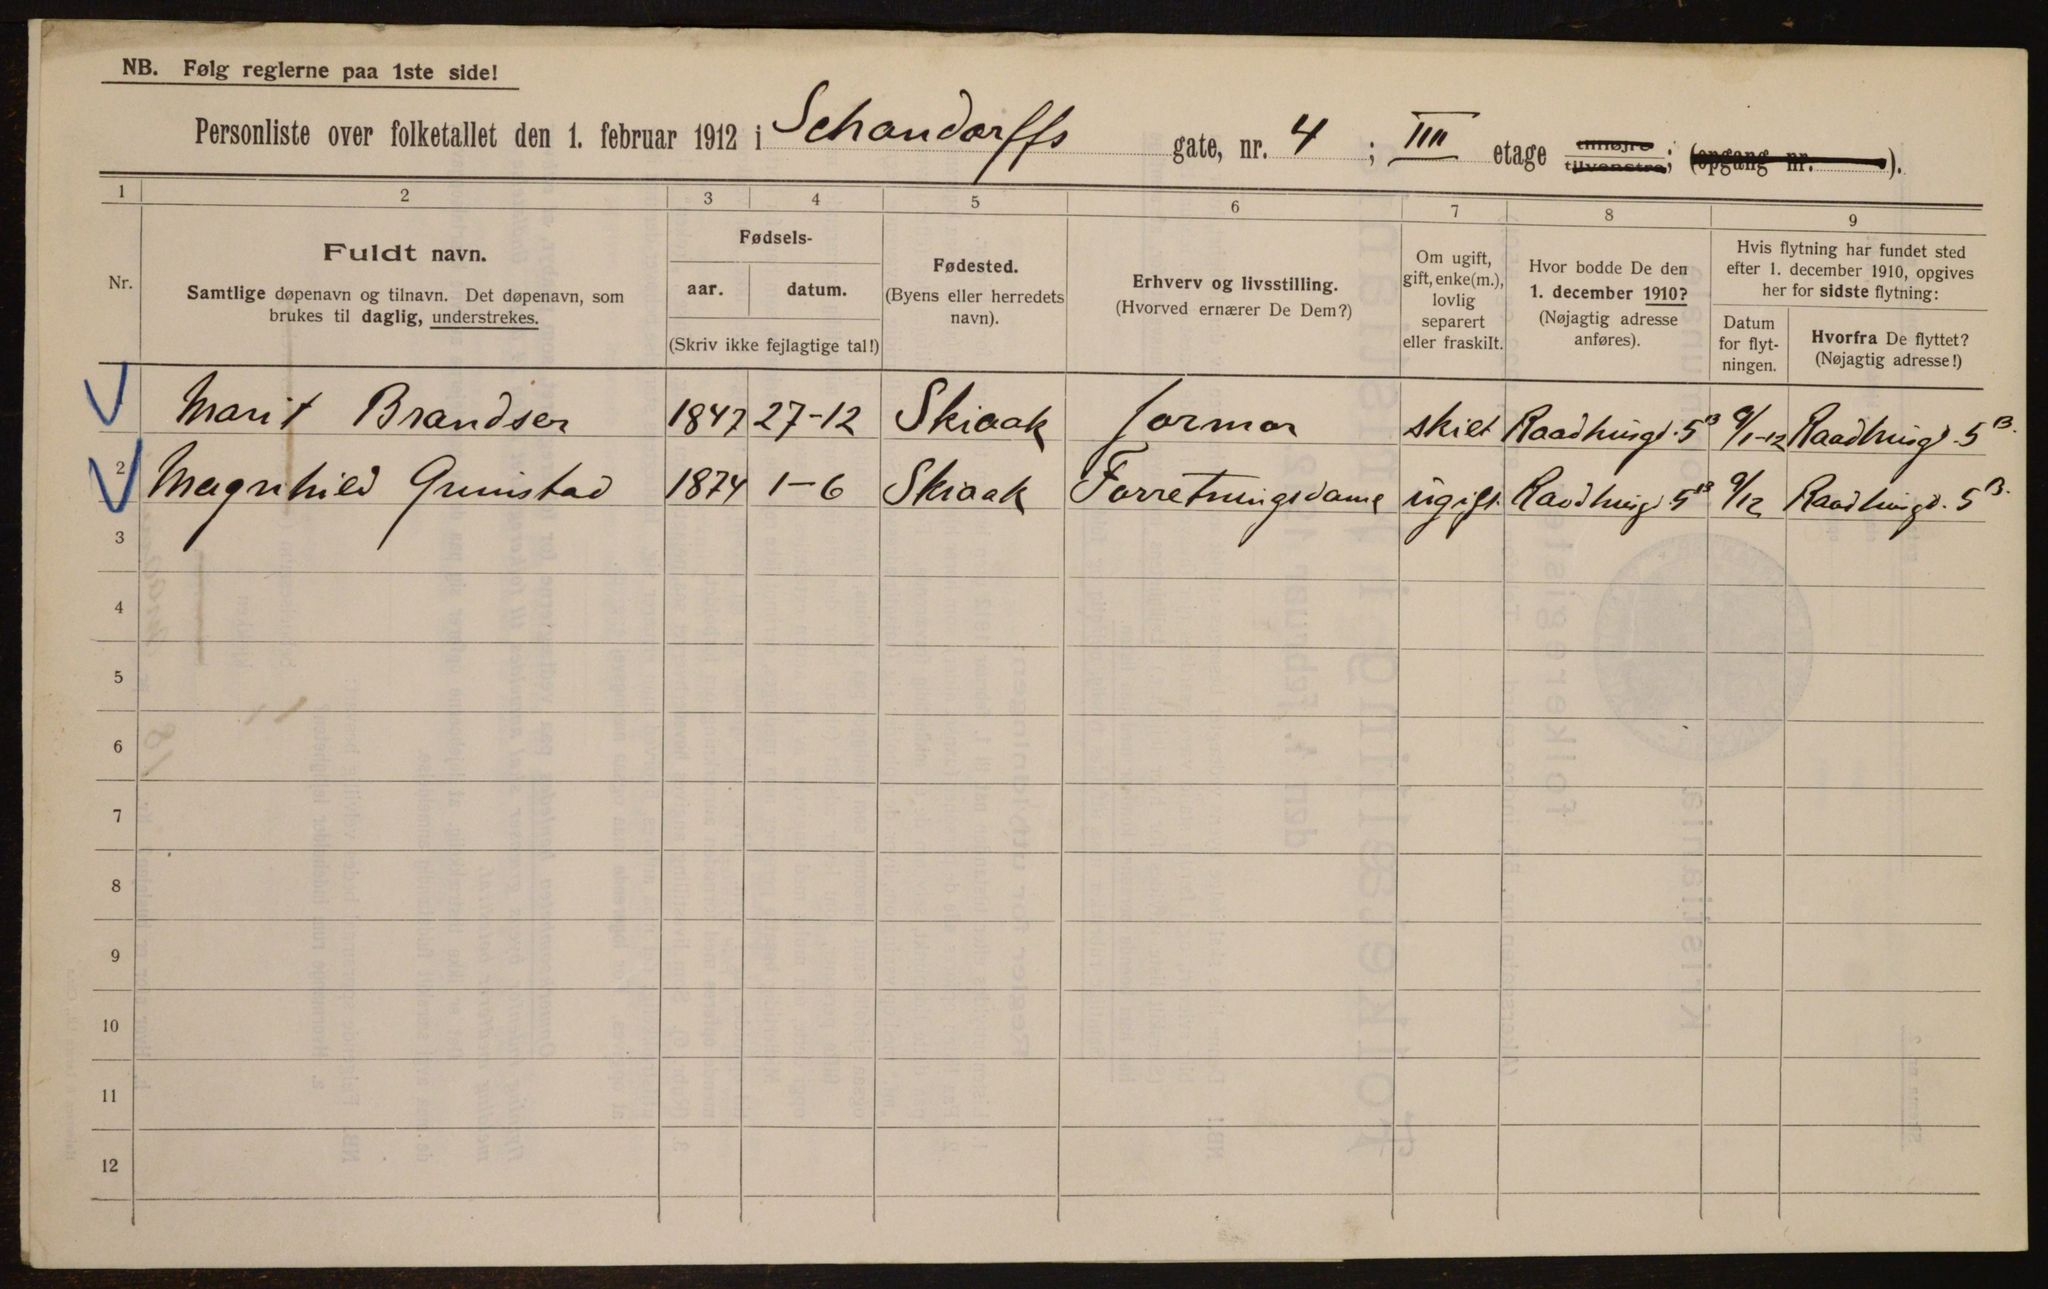 NB. Følg reglerne paa 1ste side!
Personliste over folketallet den 1. februar 1912 i Schandorffs gate, nr. 4 ; IIII etage tilhøjre tilvenstre; (opgang nr. ).
1 2 3 4 5 6 7 8 9
Nr.
Fuldt navn.
Samtlige døpenavn og tilnavn. Det døpenavn, som
brukes til daglig, understrekes.
Fødsels-
aar. datum.
(Skriv ikke fejlagtige tal!)
Fødested.
(Byens eller herredets
navn).
Erhverv og livsstilling.
(Hvorved ernærer De Dem?)
Om ugift,
gift, enke(m.),
lovlig
separert
eller fraskilt.
Hvor bodde De den
1. december 1910?
(Nøjagtig adresse
anføres).
Hvis flytning har fundet sted
efter 1. december 1910, opgives
her for sidste flytning:
Datum
for flyt-
ningen.
Hvorfra De flyttet?
(Nøjagtig adresse!)
Marit Brandser 1847 27-12 Skiaak Jormor skilt Raadhusgd. 5B 9/1-12 Raadhusgd. 5B.
2 Magnhild Grimstad 1874 1-6 Skiaak Forretningsdame ugift. Raadhusgd. 5B 9/12 Raadhusgd. 5B.
3
4
5
6
7
8
9
10
11
12